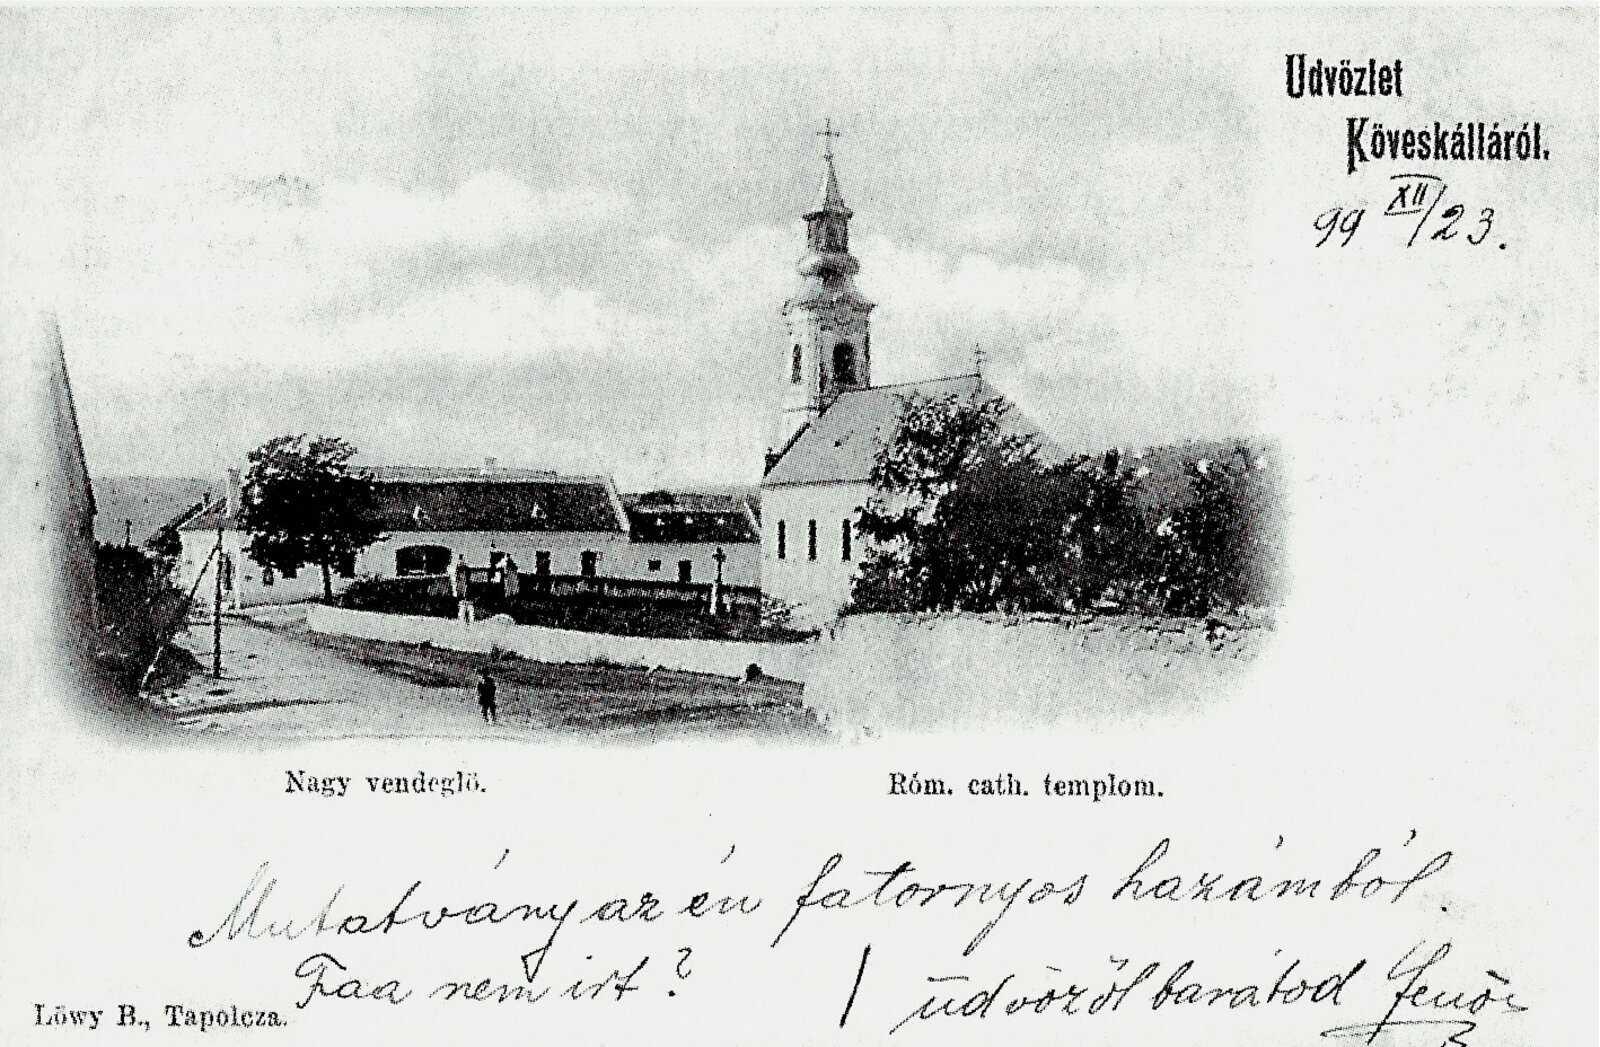 Udvözlet
Köveskálláról.
99 XII/23.
Nagy vendeglő.
Róm. cath. templom.
Mutatvány az én fatornyos hazámból.
Faa nem irt?
/ üdvözöl barátod Jenő
Löwy B., Tapolcza.